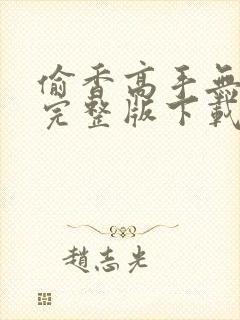 偷香高手無
完整版下載
趙志光